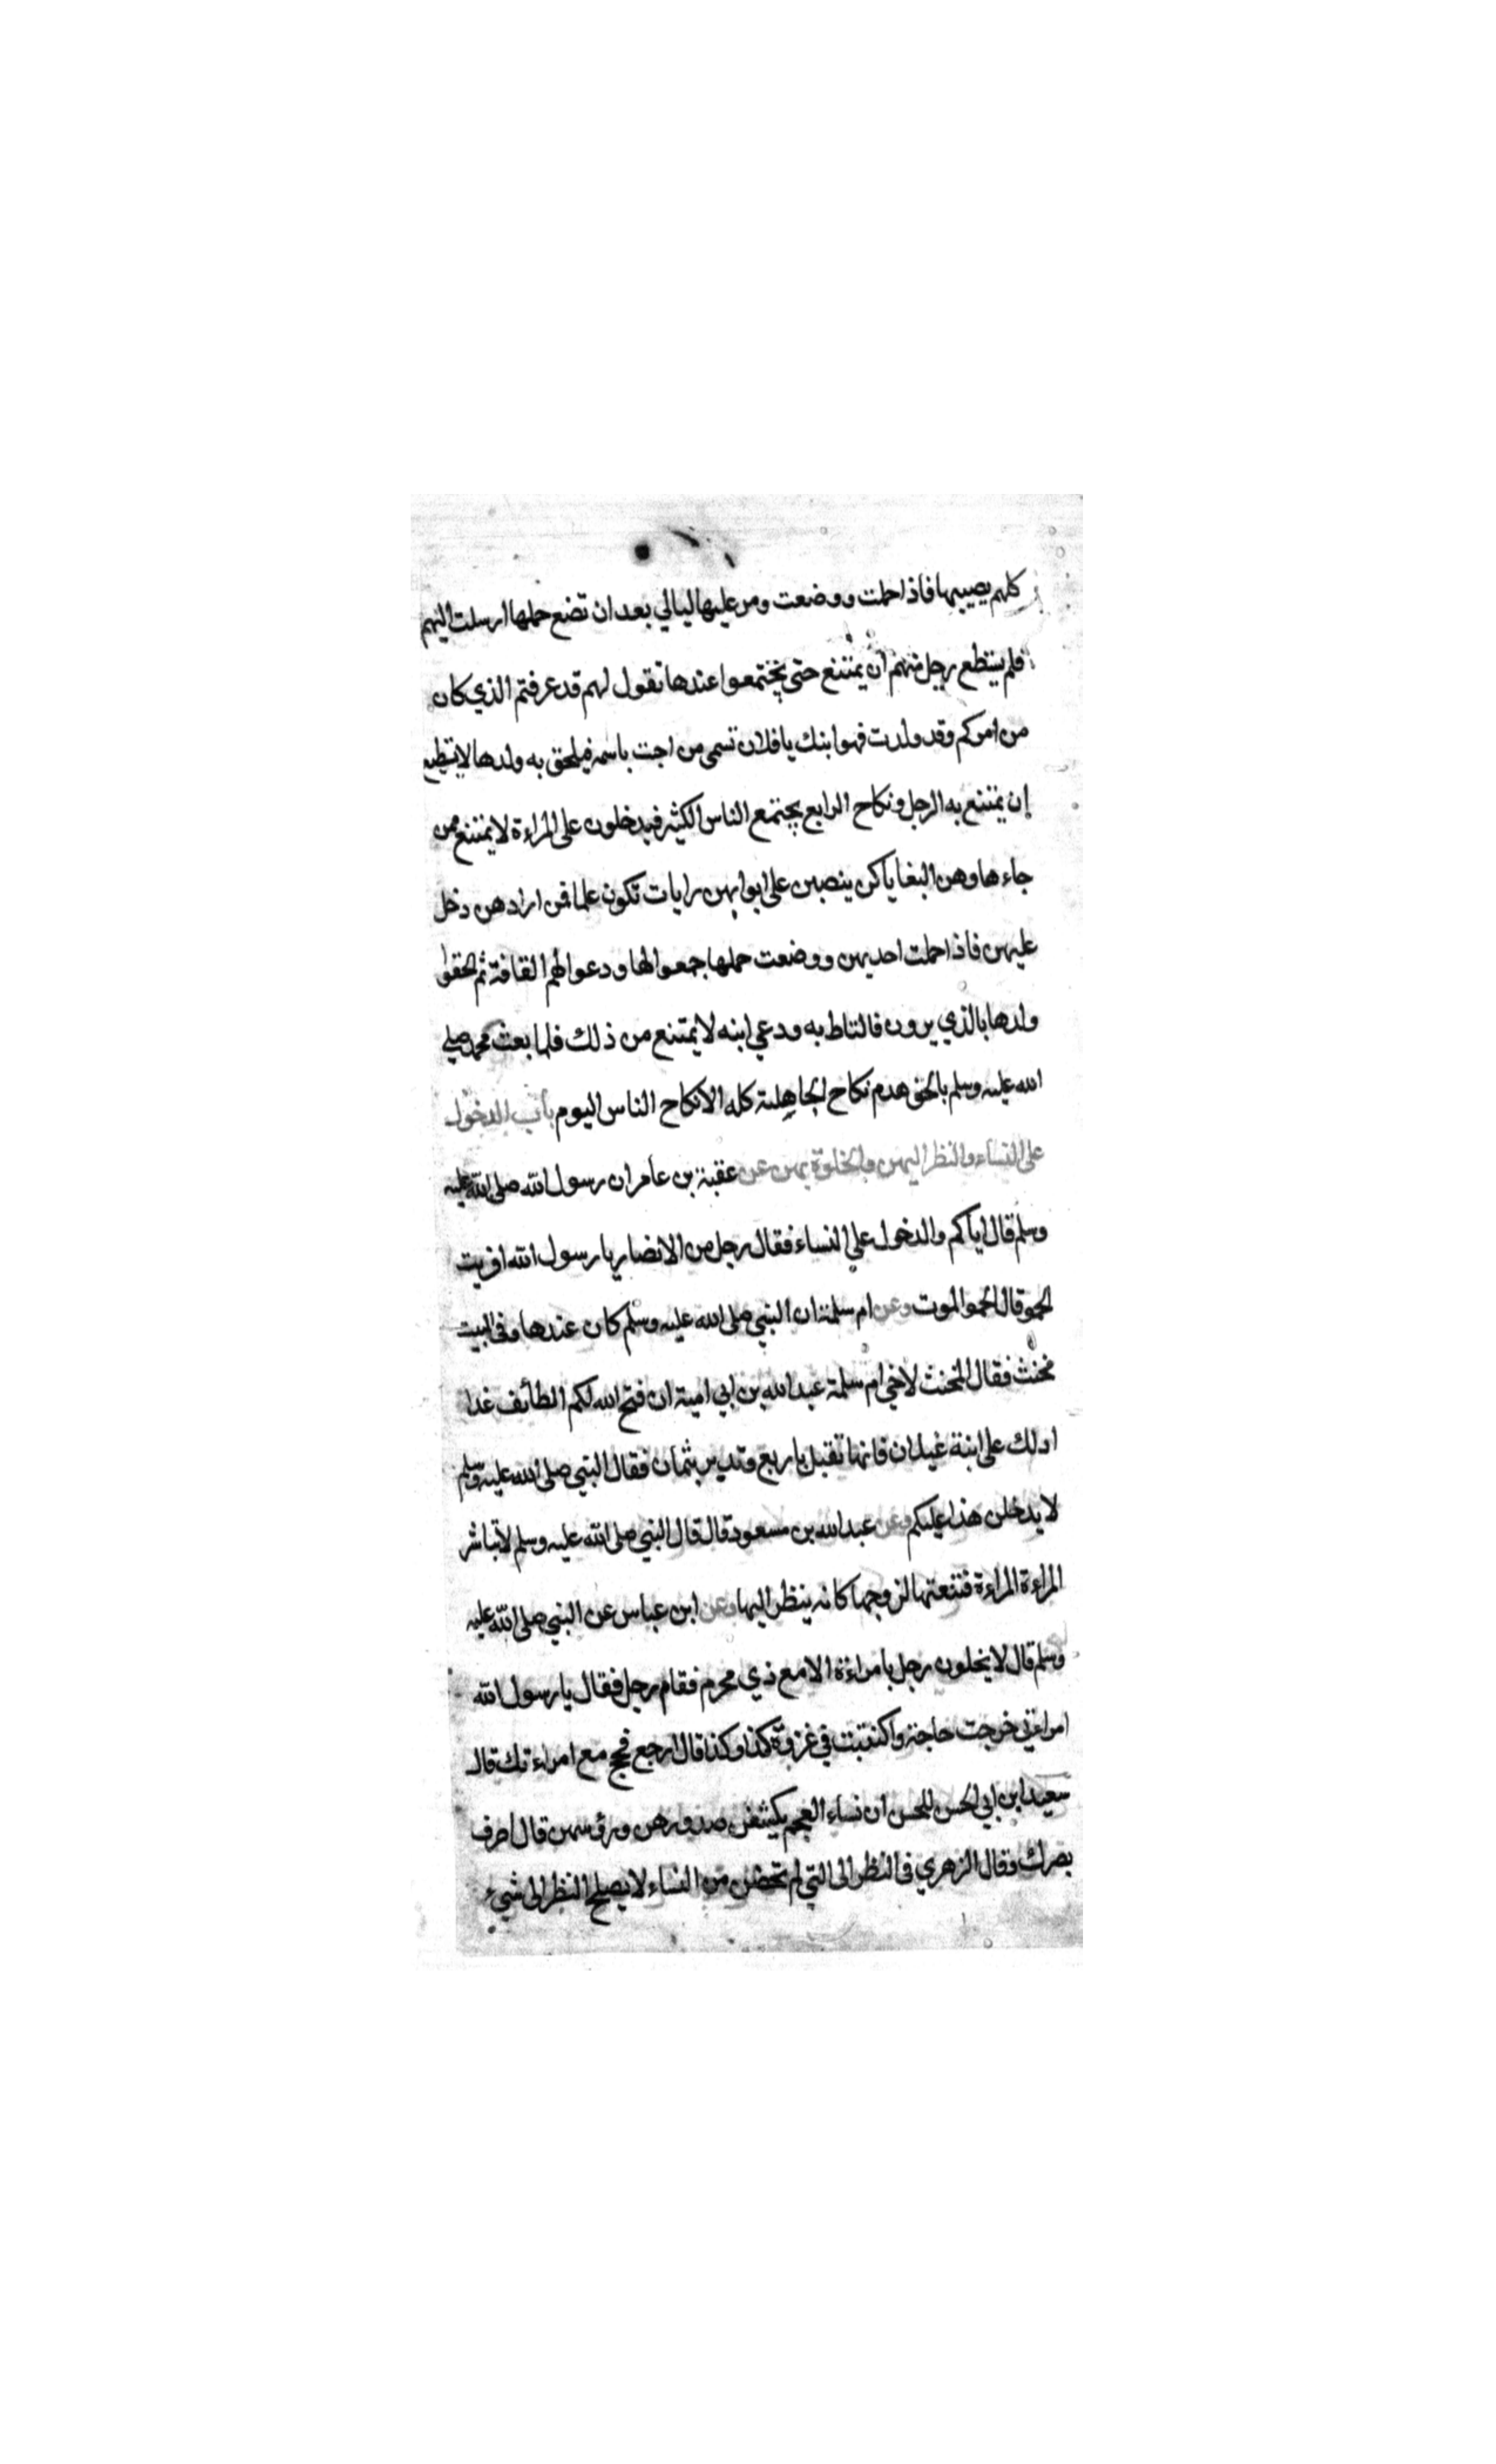 كلهم يصيبها فاذا حملت ووضعت ومر عليها ليالي بعد ان تضع حملها ارسلت اليهم
فلم يستطع رجل منهم ان يمتنع حتى يجتمعوا عندها تقول لهم قد عرفتم الذي كان
من امركم وقد ولدت فهو ابنك يا فلان تسمي من احبت باسمه فيلحق به ولدها لا يستطيع
إن يمتنع به الرجل ونكاح الرابع يجتمع الناس الكثير فيدخلون على المراءة لا يمتنع ممن
جاءها وهن البغايا كن ينصبن على ابوابهن رايات تكون علما فمن ارادهن دخل
عليهن فاذا حملت احديهن ووضعت حملها جمعوا لها ودعوا لهم القافة ثم الحقوا
ولدها بالذي يرون فالتاط به ودعي ابنه لا يمتنع من ذلك فلما بعث محمد صلي
الله عليه وسلم بالحق هدم نكاح الجاهلية كله الا نكاح الناس اليوم باب الدخول
على النساء والنظر اليهن والخلوة بهن عن عقبة بن عامر ان رسول الله صلى الله عليه
وسلم قال اياكم والدخول علي النساء فقال رجل من الانصار يا رسول الله افريت
الحمو قال الحمو الموت وعن ام سلمة ان النبي صلى الله عليه وسلم كان عندها وفي البيت
مخنث فقال المخنث لاخي ام سلمة عبد الله بن ابي امية ان فتح الله لكم الطائف غدا
ادلك على ابنة غيلان فانها تقبل باربع وتدبر بثمان فقال النبي صلى الله عليه وسلم
لا يدخلن هذا عليكم وعن عبد الله بن مسعود قال قال النبي صلى الله عليه وسلم لا تباشر
المراءة المراءة فتنعتها لزوجها كانه ينظر اليها وعن ابن عباس عن النبي صلى الله عليه
وسلم قال لا يخلون رجل بامراءة الا مع ذي محرم فقام رجل فقال يا رسول الله
امراتي خرجت حاجة واكتتبت في غزوة كذا وكذا قال ارجع فحج مع امراءتك قال
سعيد ابن ابي الحسن للحسن ان نساء العجم يكشفن صدورهن ورؤسهن قال اصرف
بصرك وقال الزهري في النظر الى التي لم تحض من النساء لا يصلح النظر الى شيء